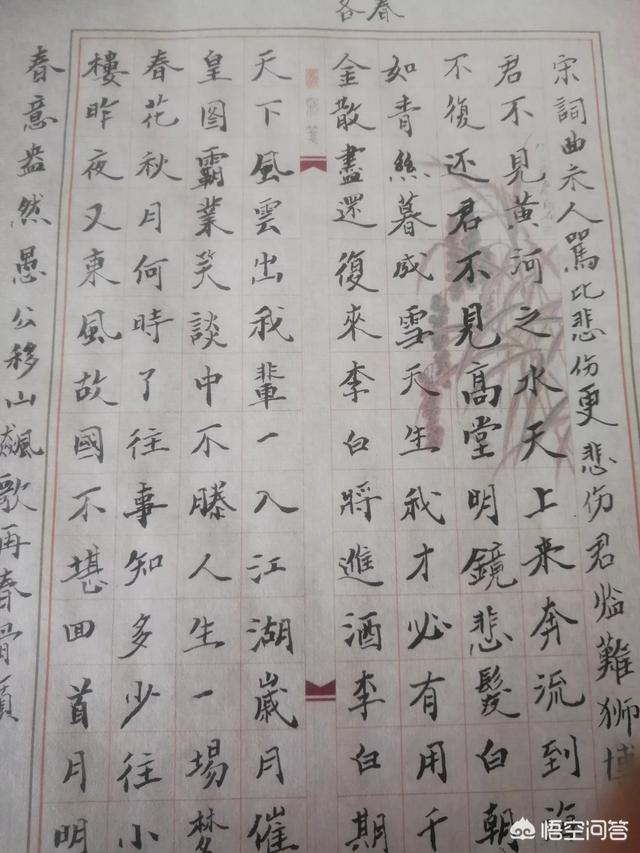 各春
宋詞曲示人罵比悲伤更悲伤君临難狮博
君不見黄河之水天上来奔流到海
不復还君不見高堂明鏡悲髮白朝
如青絲暮成雪天生我才必有用千
金散盡還復來李白將進酒李白期
天下風雲出我輩一入江湖歲月催
皇图霸業笑談中不勝人生一場梦
春花秋月何時了往事知多少往小
樓昨夜又東風故國不堪回首月明
春意盎然愚公移山飆歌再春骨
悟空问答